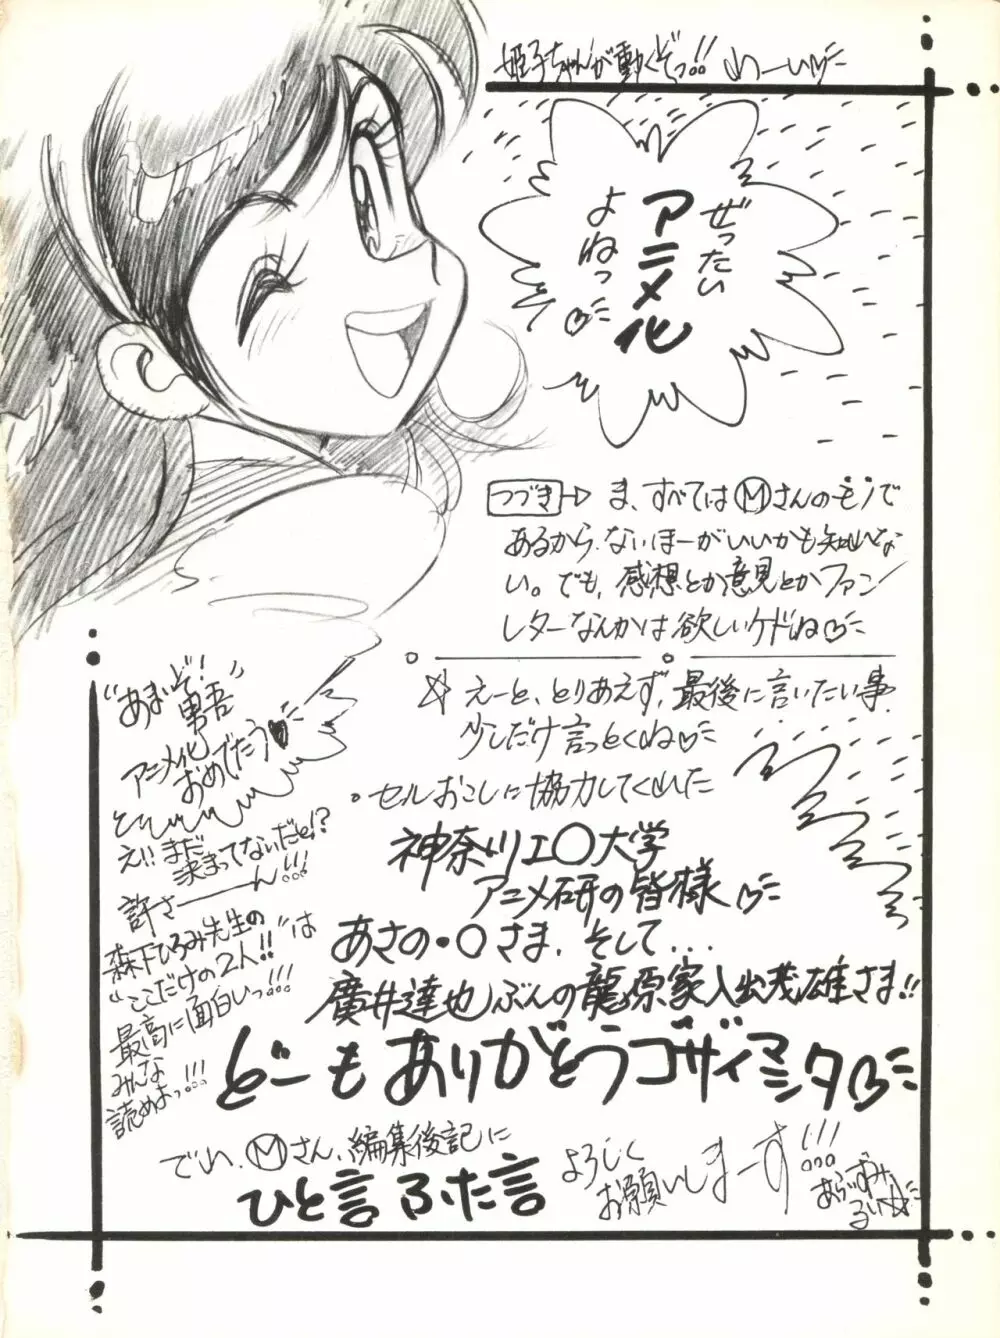 姫子ちゃんが動くぞっ!! わーい
ぜったい
アニメ化
よねっ
つづき
ま、すべてはⓂさんのモノで
あるから、ないほーがいいかも知れな
い。でも、感想とか意見とかファン
レターなんかは欲しいケドね
☆ えーと、とりあえず、最後に言いたい事、
少しだけ言っとくね
。セルおこしに協力してくれた
神奈川工〇大学
アニメ研の皆様
あさの・〇さま、そして...
廣井達也ぶんの龍原家入出茂雄さま!!
どーもありがとうゴザイマシタ
でわ、Ⓜさん、編集後記に
ひと言ふた言
よろしく
お願いしまーす!!!
あらいずみ
るい☆
“あまいぞ!
男吾”
アニメ化
おめでたう♥
え!! まだ
決まってないだと!?
許さーーん!!!
森下ひろみ先生の
“ここだけの2人!!”は
最高に面白いっ!!!
みんな
読めよっ!!!